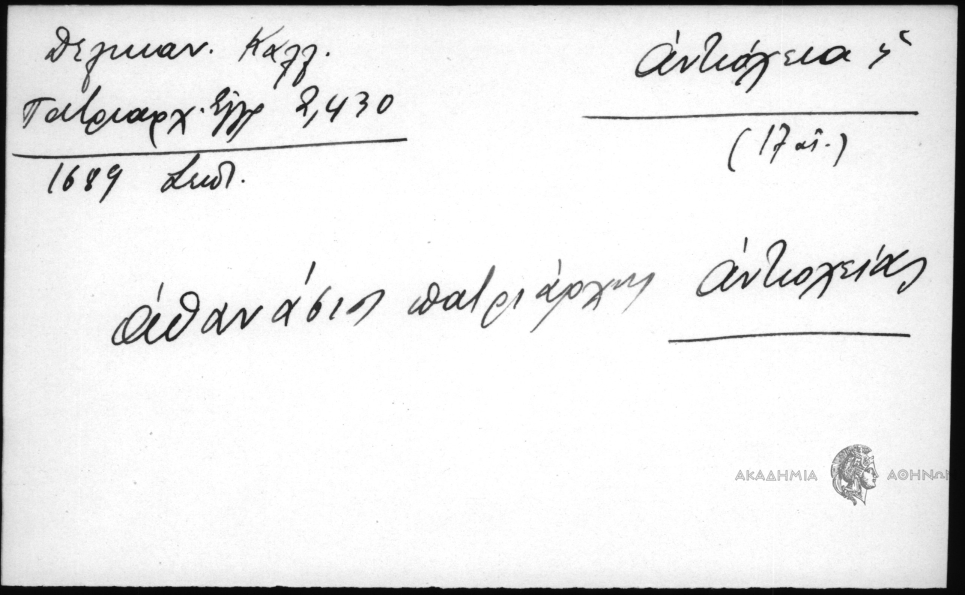 Δελικαν. Καλλ.
Πατριαρχ. Ἔγγρ 2,430
1689 Σεπτ.
Ἀντιόχεια ἡ
(17 αἰ.)
Ἀθανάσιος πατριάρχης Ἀντιοχείας
ΑΚΑΔΗΜΙΑ ΑΘΗΝΩΝ